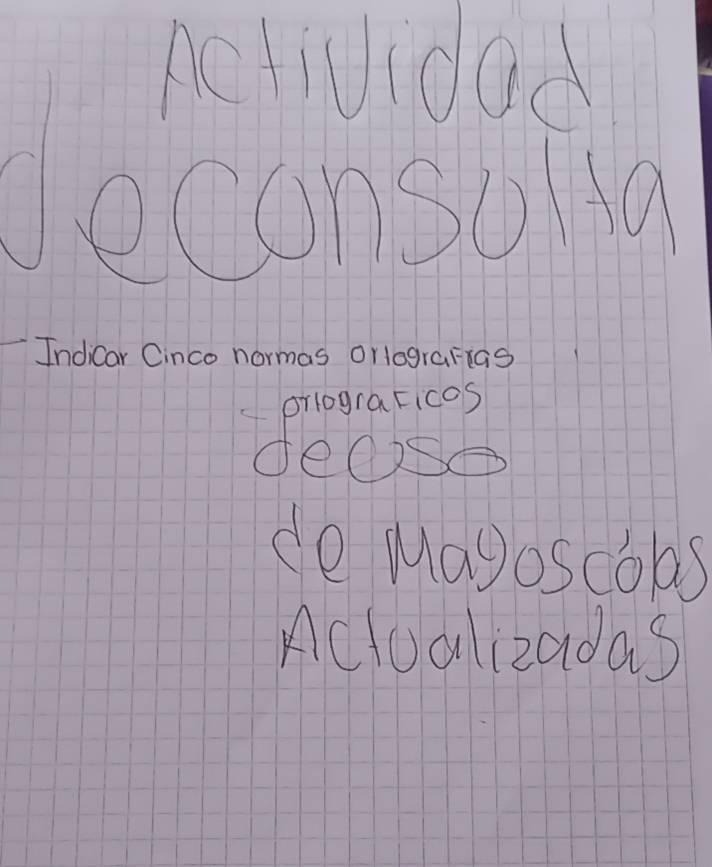 Actividad
de consulta
- Indicar Cinco normas ortografías
- ortograficos
de uso
de Mayoscólas
Actualizadas